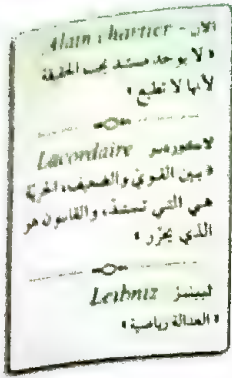 الان - Alain Chartier
« لا يوجد مستبد يحب الحقيقة
لأنها لا تطيع »
لاكوردير Lacordaire
« بين القوي والضعيف، الحرية
هي التي تستعبد، والقانون هو
الذي يحرر »
ليبنز Leibniz
« العدالة رياضية »